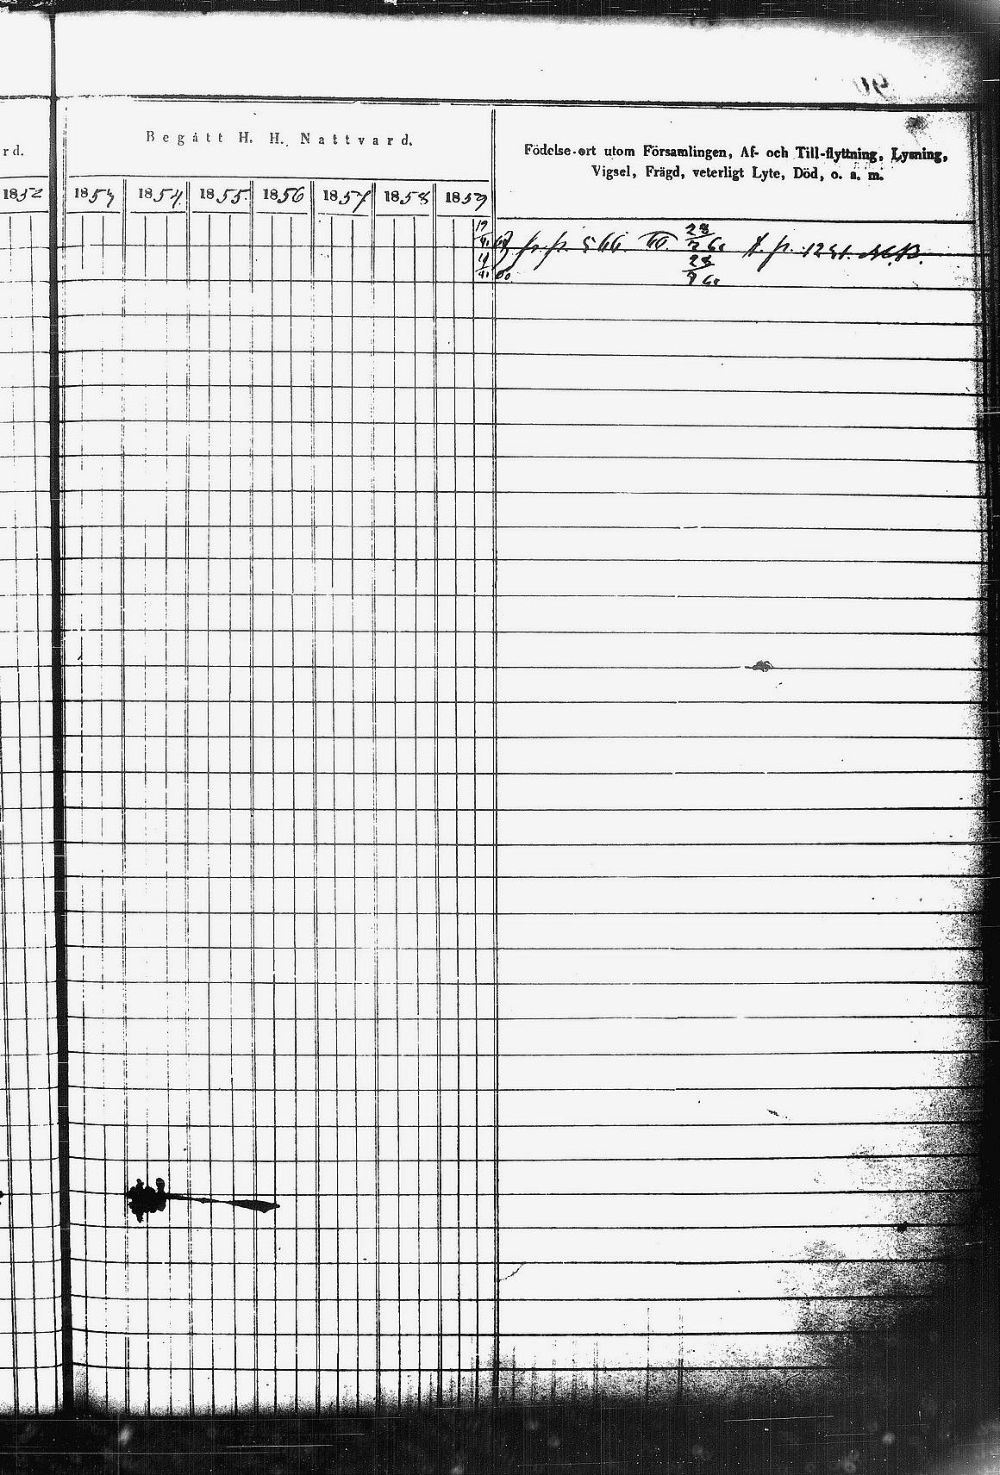 rd.
Begått H. H. Nattvard.
Födelse-ort utom Församlingen, Af- och Till-flyttning, Lysning,
Vigsel, Frägd, veterligt Lyte, Död, o. s. m.
1852 1853 1854. 1855. 1856 1857 1858 1859
fr. p. 566 28 p. 1231.
28